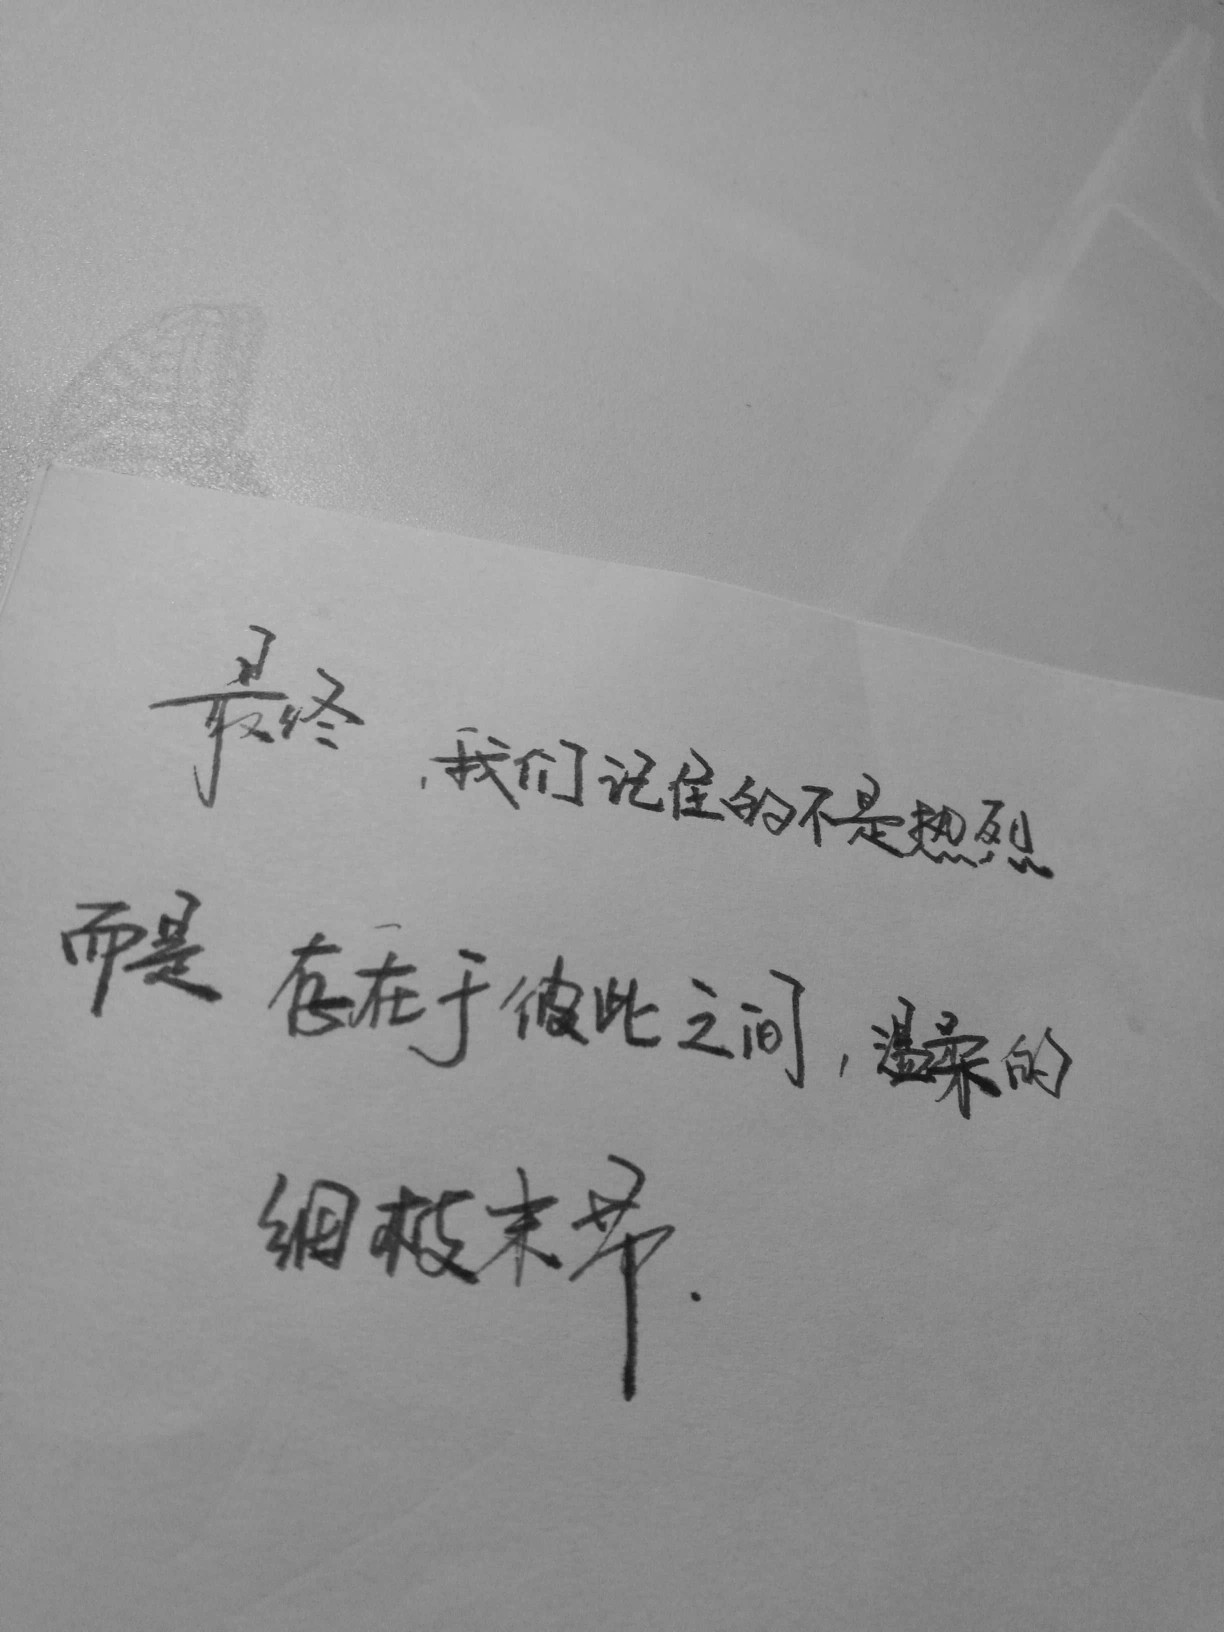 最终，我们记住的不是热烈
而是存在于彼此之间，温柔的
细枝末节.